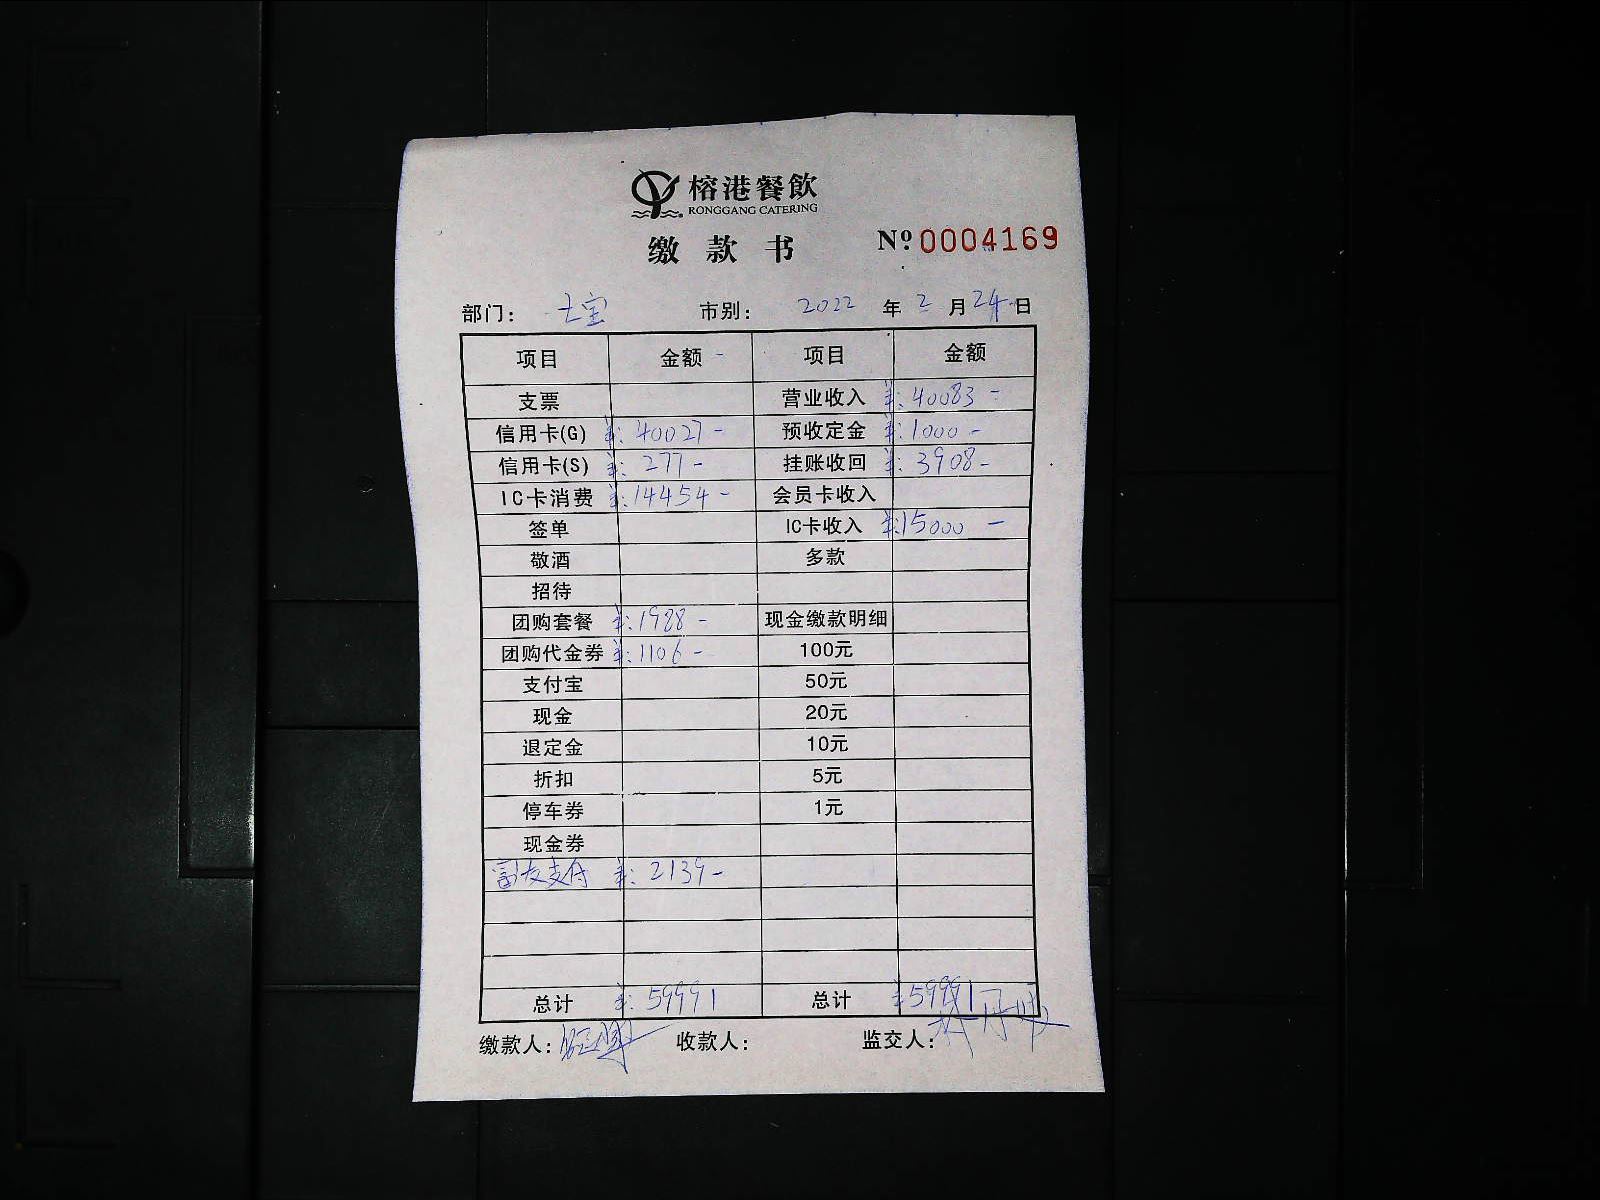 榕港餐飲
RONGGANG CATERING
缴款书 Nº 0004169
部门： 七宝 市别： 2022 年 2 月 24 日
项目 金额 - 项目 金额
支票 营业收入 ¥: 40083 -
信用卡(G) ¥: 40027 - 预收定金 ¥: 1000 -
信用卡(S) ¥: 277 - 挂账收回 ¥: 3908 -
IC卡消费 ¥: 14454 - 会员卡收入
签单 IC卡收入 ¥: 15000 -
敬酒 多款
招待
团购套餐 ¥: 1988 - 现金缴款明细
团购代金券 ¥: 1106 - 100元
支付宝 50元
现金 20元
退定金 10元
折扣 5元
停车券 1元
现金券
富友支付 ¥: 2139 -
总计 ¥: 59991 总计 ¥59991
缴款人： 收款人： 监交人：